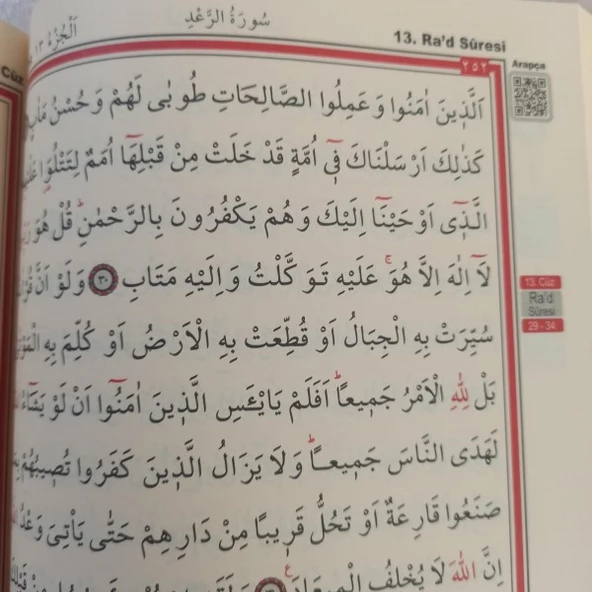 اَلْجُزْءُ ١٣
سُورَةُ الرَّعْدِ
13. Ra'd Sûresi
٢٥٢
Arapça
Cüz
اَلَّذ۪ينَ اٰمَنُوا وَعَمِلُوا الصَّالِحَاتِ طُوبٰى لَهُمْ وَحُسْنُ مَاٰبٍ
كَذٰلِكَ اَرْسَلْنَاكَ ف۪ٓي اُمَّةٍ قَدْ خَلَتْ مِنْ قَبْلِهَٓا اُمَمٌ لِتَتْلُوَ۬ا
الَّذ۪ٓي اَوْحَيْنَٓا اِلَيْكَ وَهُمْ يَكْفُرُونَ بِالرَّحْمٰنِۜ قُلْ هُوَ
لَٓا اِلٰهَ اِلَّا هُوَۚ عَلَيْهِ تَوَكَّلْتُ وَاِلَيْهِ مَتَابِ ﴿٣٠﴾ وَلَوْ اَنَّ
13. Cüz
Ra'd
Sûresi
29 - 34
سُيِّرَتْ بِهِ الْجِبَالُ اَوْ قُطِّعَتْ بِهِ الْاَرْضُ اَوْ كُلِّمَ بِهِ
بَلْ لِلّٰهِ الْاَمْرُ جَم۪يعًاۜ اَفَلَمْ يَايْـَٔسِ الَّذ۪ينَ اٰمَنُٓوا اَنْ لَوْ يَشَٓاءُ
لَهَدَى النَّاسَ جَم۪يعًاۜ وَلَا يَزَالُ الَّذ۪ينَ كَفَرُوا تُص۪يبُهُمْ
صَنَعُوا قَارِعَةٌ اَوْ تَحُلُّ قَر۪يبًا مِنْ دَارِهِمْ حَتّٰى يَأْتِيَ وَعْدُ
اِنَّ اللّٰهَ لَا يُخْلِفُ الْم۪يعَادَ۟